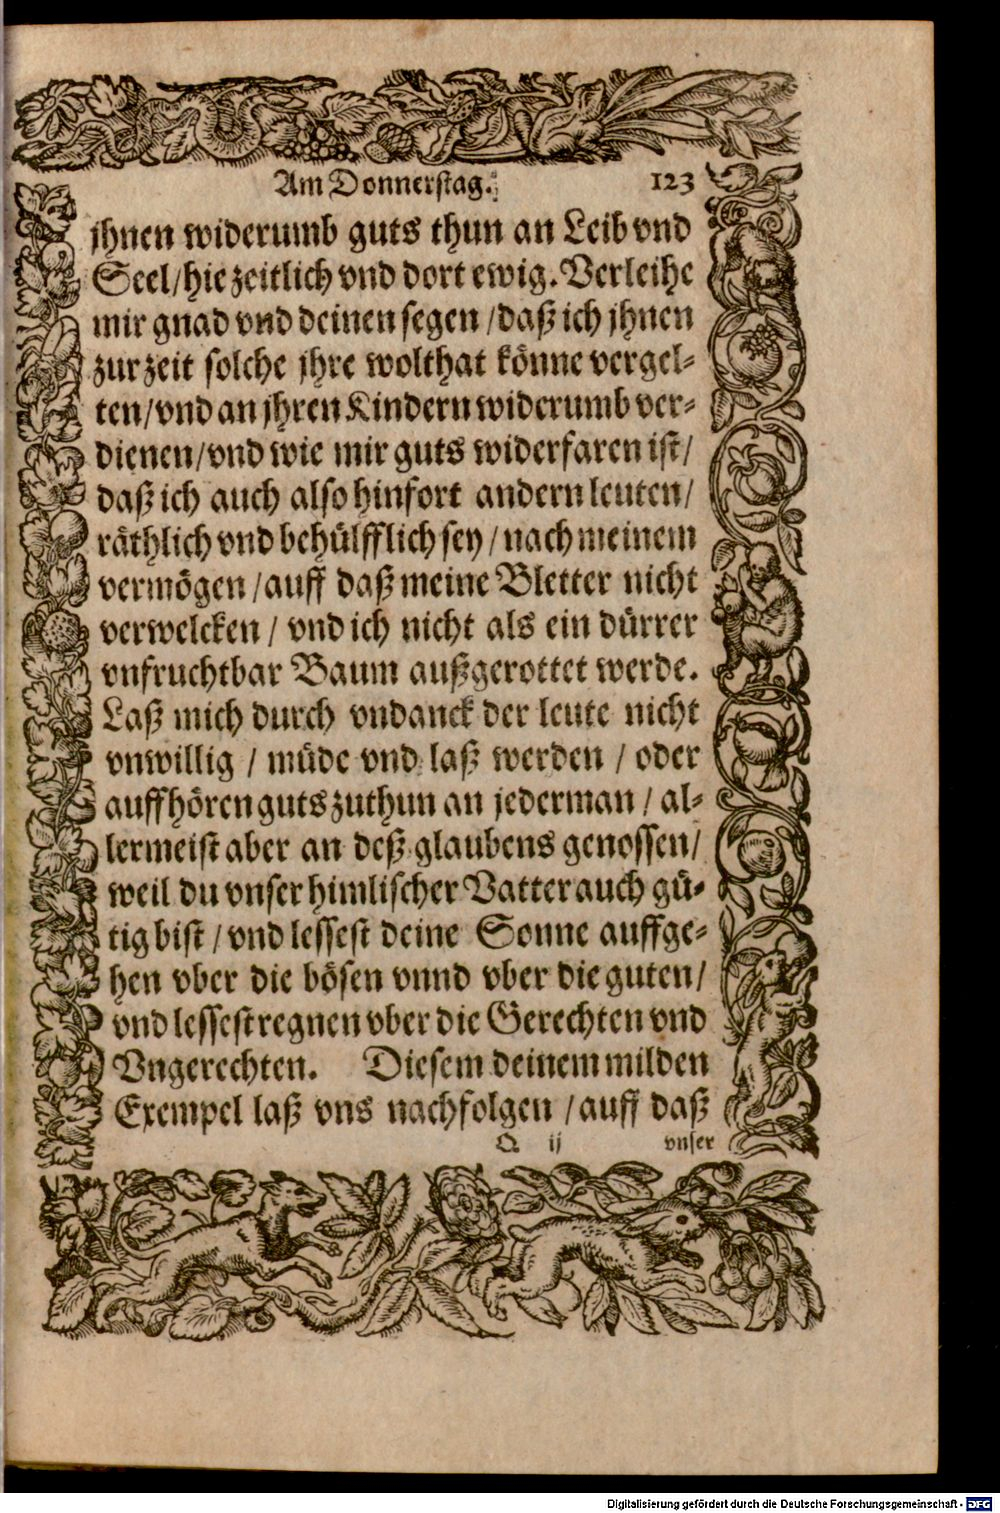 Am Donnerstag. 123
jhnen widerumb guts thun an Leib vnd
Seel/hie zeitlich vnd dort ewig. Verleihe
mir gnad vnd deinen segen /daß ich jhnen
zur zeit solche jhre wolthat könne vergel-
ten/vnd an jhren Kindern widerumb ver-
dienen/vnd wie mir guts widerfaren ist/
daß ich auch also hinfort andern leuten/
räthlich vnd behülfflich sey /nach meinem
vermögen /auff daß meine Bletter nicht
verwelcken / vnd ich nicht als ein dürrer
vnfruchtbar Baum außgerottet werde.
Laß mich durch vndanck der leute nicht
vnwillig / müde vnd laß werden / oder
auffhören guts zuthun an jederman / al-
lermeist aber an deß glaubens genossen/
weil du vnser himlischer Vatter auch gü-
tig bist / vnd lessest deine Sonne auffge-
hen vber die bösen vnnd vber die guten/
vnd lessest regnen vber die Gerechten vnd
Vngerechten. Diesem deinem milden
Exempel laß vns nachfolgen /auff daß
Q ij vnser
Digitalisierung gefördert durch die Deutsche Forschungsgemeinschaft - DFG